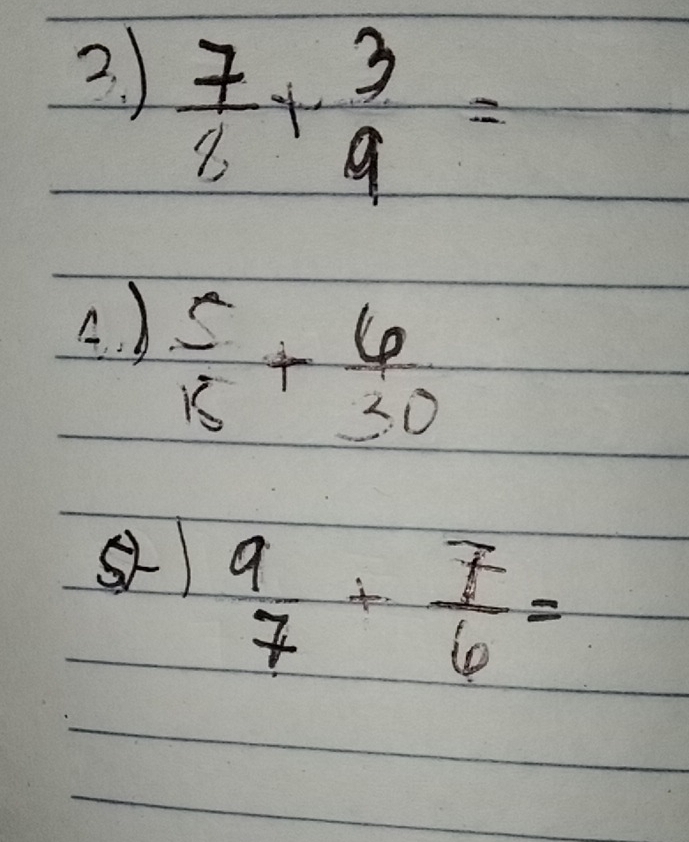 3.) 7/8 + 3/9 =
4.) 5/15 + 6/30
5.) 9/7 + 7/6 =